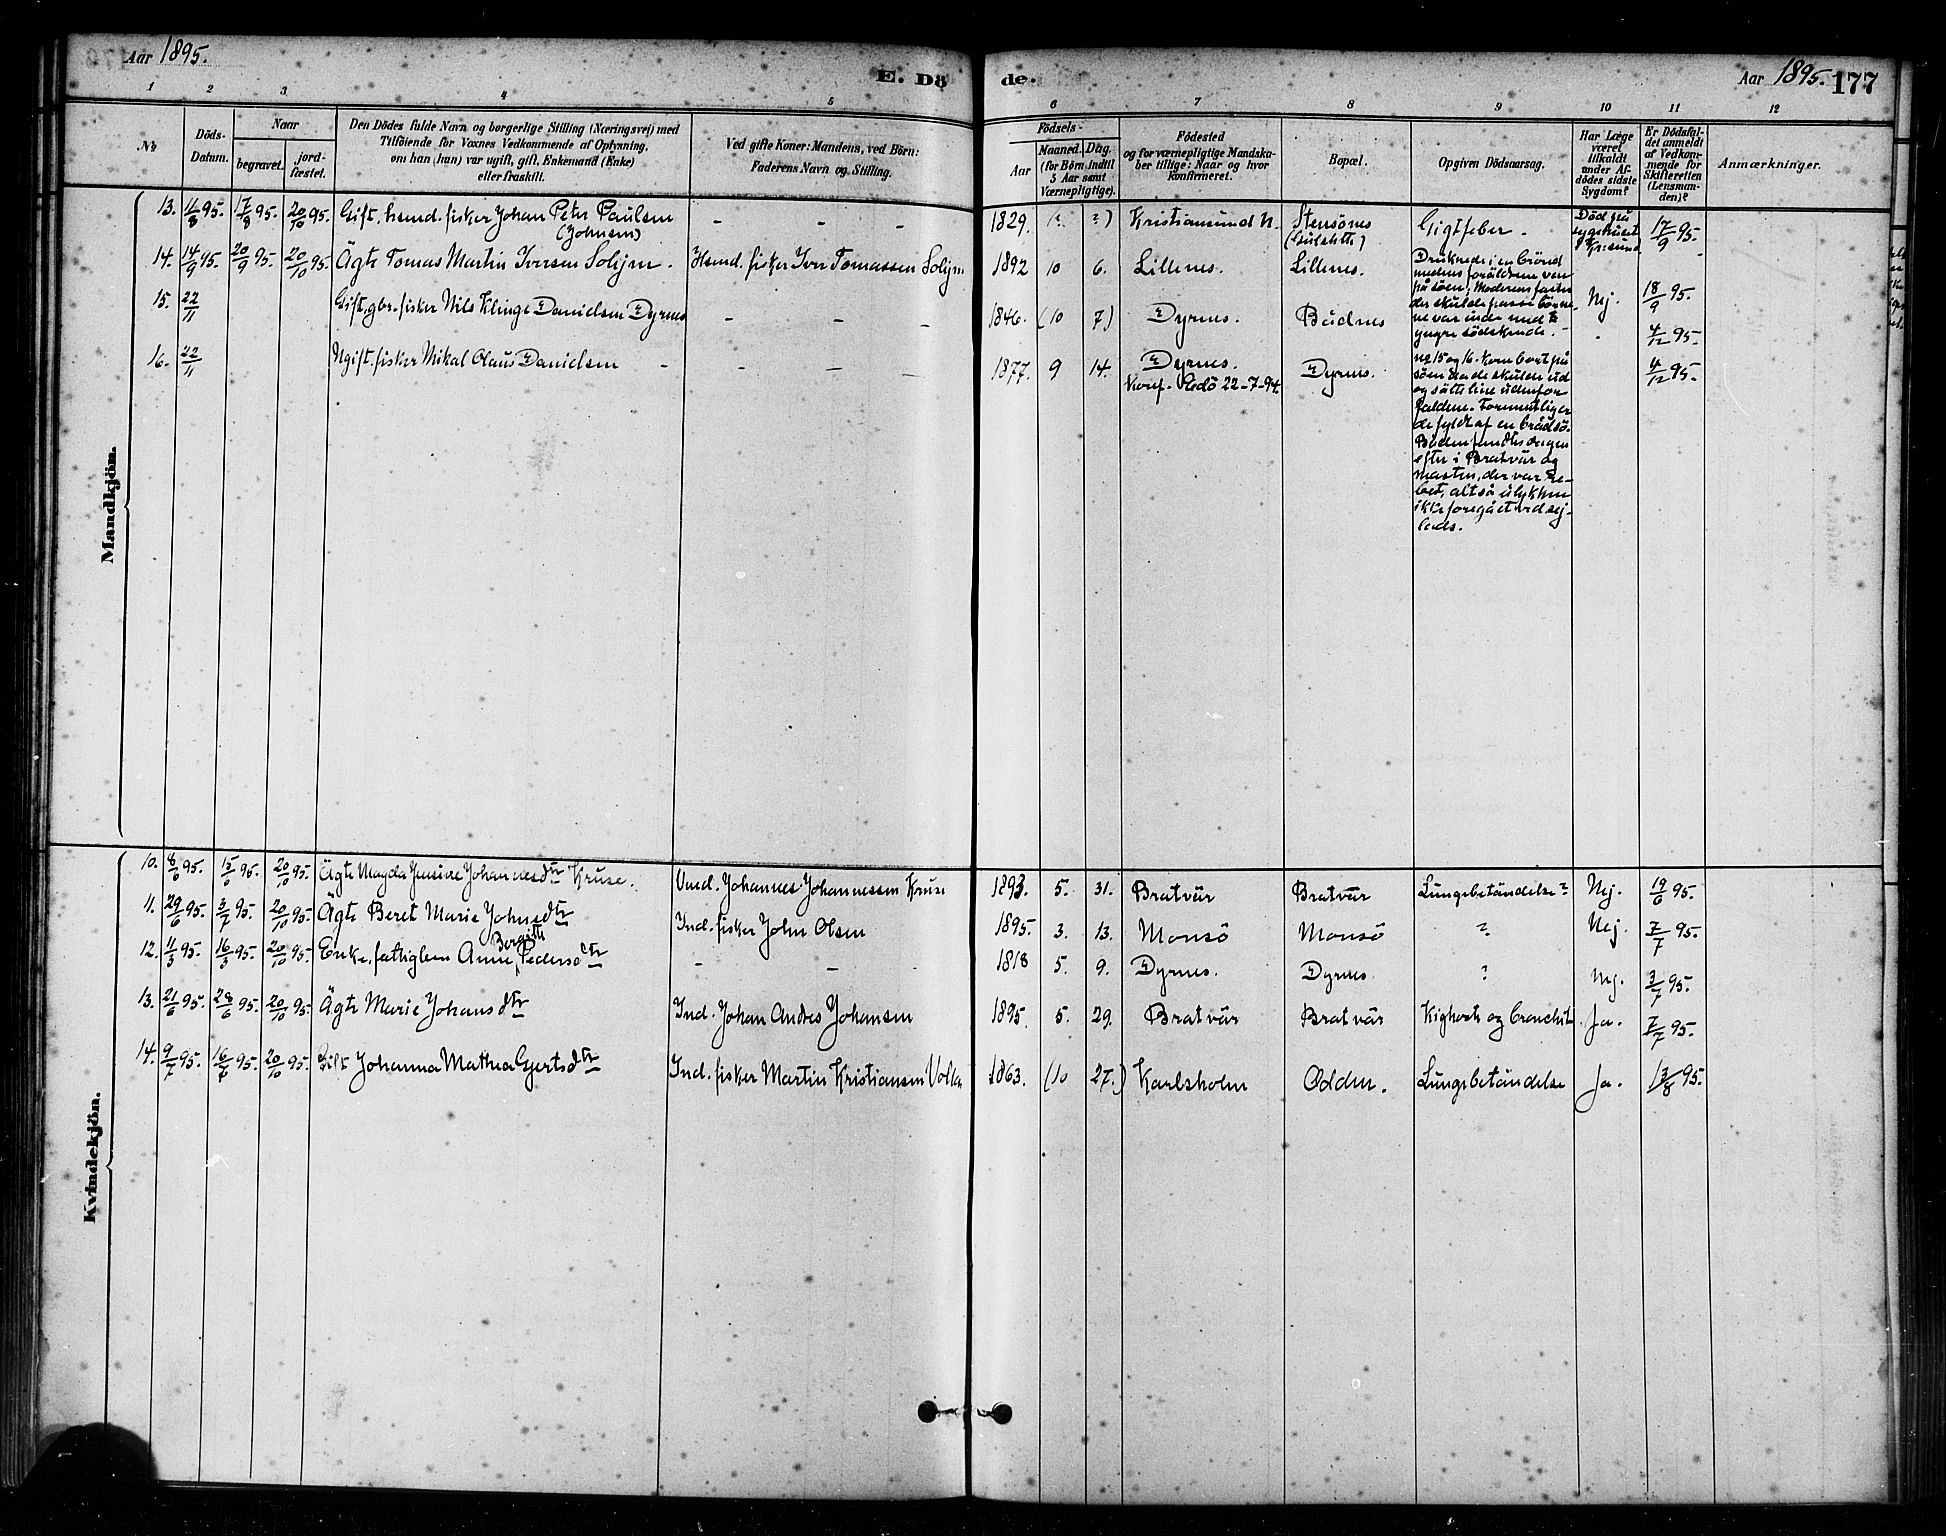 Aar 1895.
E. Dö
de.
Aar 1895. 177
1 2 3 4 5 6 7 8 9 10 11 12
№
Döds-
Datum.
Naar
begravet.
jord-
fæstet.
Den Dödes fulde Navn og borgerlige Stilling (Næringsvei) med
Tilföiende for Voxnes Vedkommende af Oplysning,
om han (hun) var ugift, gift, Enkemand (Enke)
eller fraskilt.
Ved gifte Koner: Mandens, ved Börn:
Faderens Navn og Stilling.
Födsels-
Aar
Maaned. Dag.
(for Börn indtil
5 Aar samt
Værnepligtige).
Födested
og for værnepligtige Mandska-
ber tillige: Naar og hvor
konfirmeret.
Bopæl.
Opgiven Dödsaarsag.
Har Læge
været
tilkaldt
under Af-
dödes sidste
Sygdom?
Er Dödsfal-
det anmeldt
af Vedkom-
mende for
Skifteretten
(Lensman-
den)?
Anmærkninger.
Mandkjön.
13. 11/8 95. 17/8 95. 20/10 95. Gift. hsmd. fisker Johan Peter Paulsen
(Johnsen)
- - -
1829. (? ?) Kristiansund N. Stensönes
Gigtfeber.
Död på
sygehuset
Krisund
17/9 95.
14. 14/9 95. 20/9 95. 20/10 95. Ägte Tomas Martin Iversen Solijm. Hsmd. fisker Iver Tomassen Solijm
1892 10 6. Lillenes. Lillenes.
Druknede i en brönd
medens foräldrene var
på söen; Moderens faster
der skulde passe börne-
ne var inde med to
yngre södskende.
Nej. 18/9 95.
15. 22/11 Gift. gbr. fisker Nils Klinge Danielsen Dyrnes - - -
1846. (10 7) Dyrnes. Bådnes
4/12 95.
16. 22/11 Ugift. fisker Mikal Olaus Danielsen - - - -
1877. 9 14. Dyrnes.
Konf. Edö 22-7-94. Dyrnes.
no 15 og 16. Kom bort på
söen
og sätte line udenfor
Formentliger
de fyldt af en brådsö.
Båden fandtes dagen
efter i Bratvär og
masten, der var re-
bet, altså ulykken
ikke foregået ved sej-
lads.
4/12 95.
Kvindekjön.
10. 8/6 95. 15/6 95. 20/10 95. Ägte Magda Jensine Johannesdtr Kruse. Vmd. Johannes Johannessen Kruse
1893. 5. 31. Bratvär Bratvär Lungebetändelse? Nej. 19/6 95.
11. 29/6 95. 3/7 95. 20/10 95. Ägte Beret Marie Johnsdtr Ind. fisker John Olsen
1895. 3. 13. Monsö Monsö ? Nej. 7/7 95.
12. 11/3 95. 16/3 95. 20/10 95. Enke, fattiglem Anne Bergitte Pedersdtr - - -
1818 5. 9. Dyrnes. Dyrnes ? Nej. 3/7 95.
13. 21/6 95. 28/6 95. 20/10 95. Ägte Marie Johansdtr Ind. Johan Andres Johansen
1895. 5. 29. Bratvär Bratvär Kighoste og bronchit. Ja. 7/7 95.
14. 9/7 95. 16/7 95. 20/10 95. Gift Johanna Mathea Gjertsdtr Ind. fisker Martin Kristiansen Volden
1863. (10 27.) Karlsholm Odden. Lungebetändelse Ja. 13/8 95.